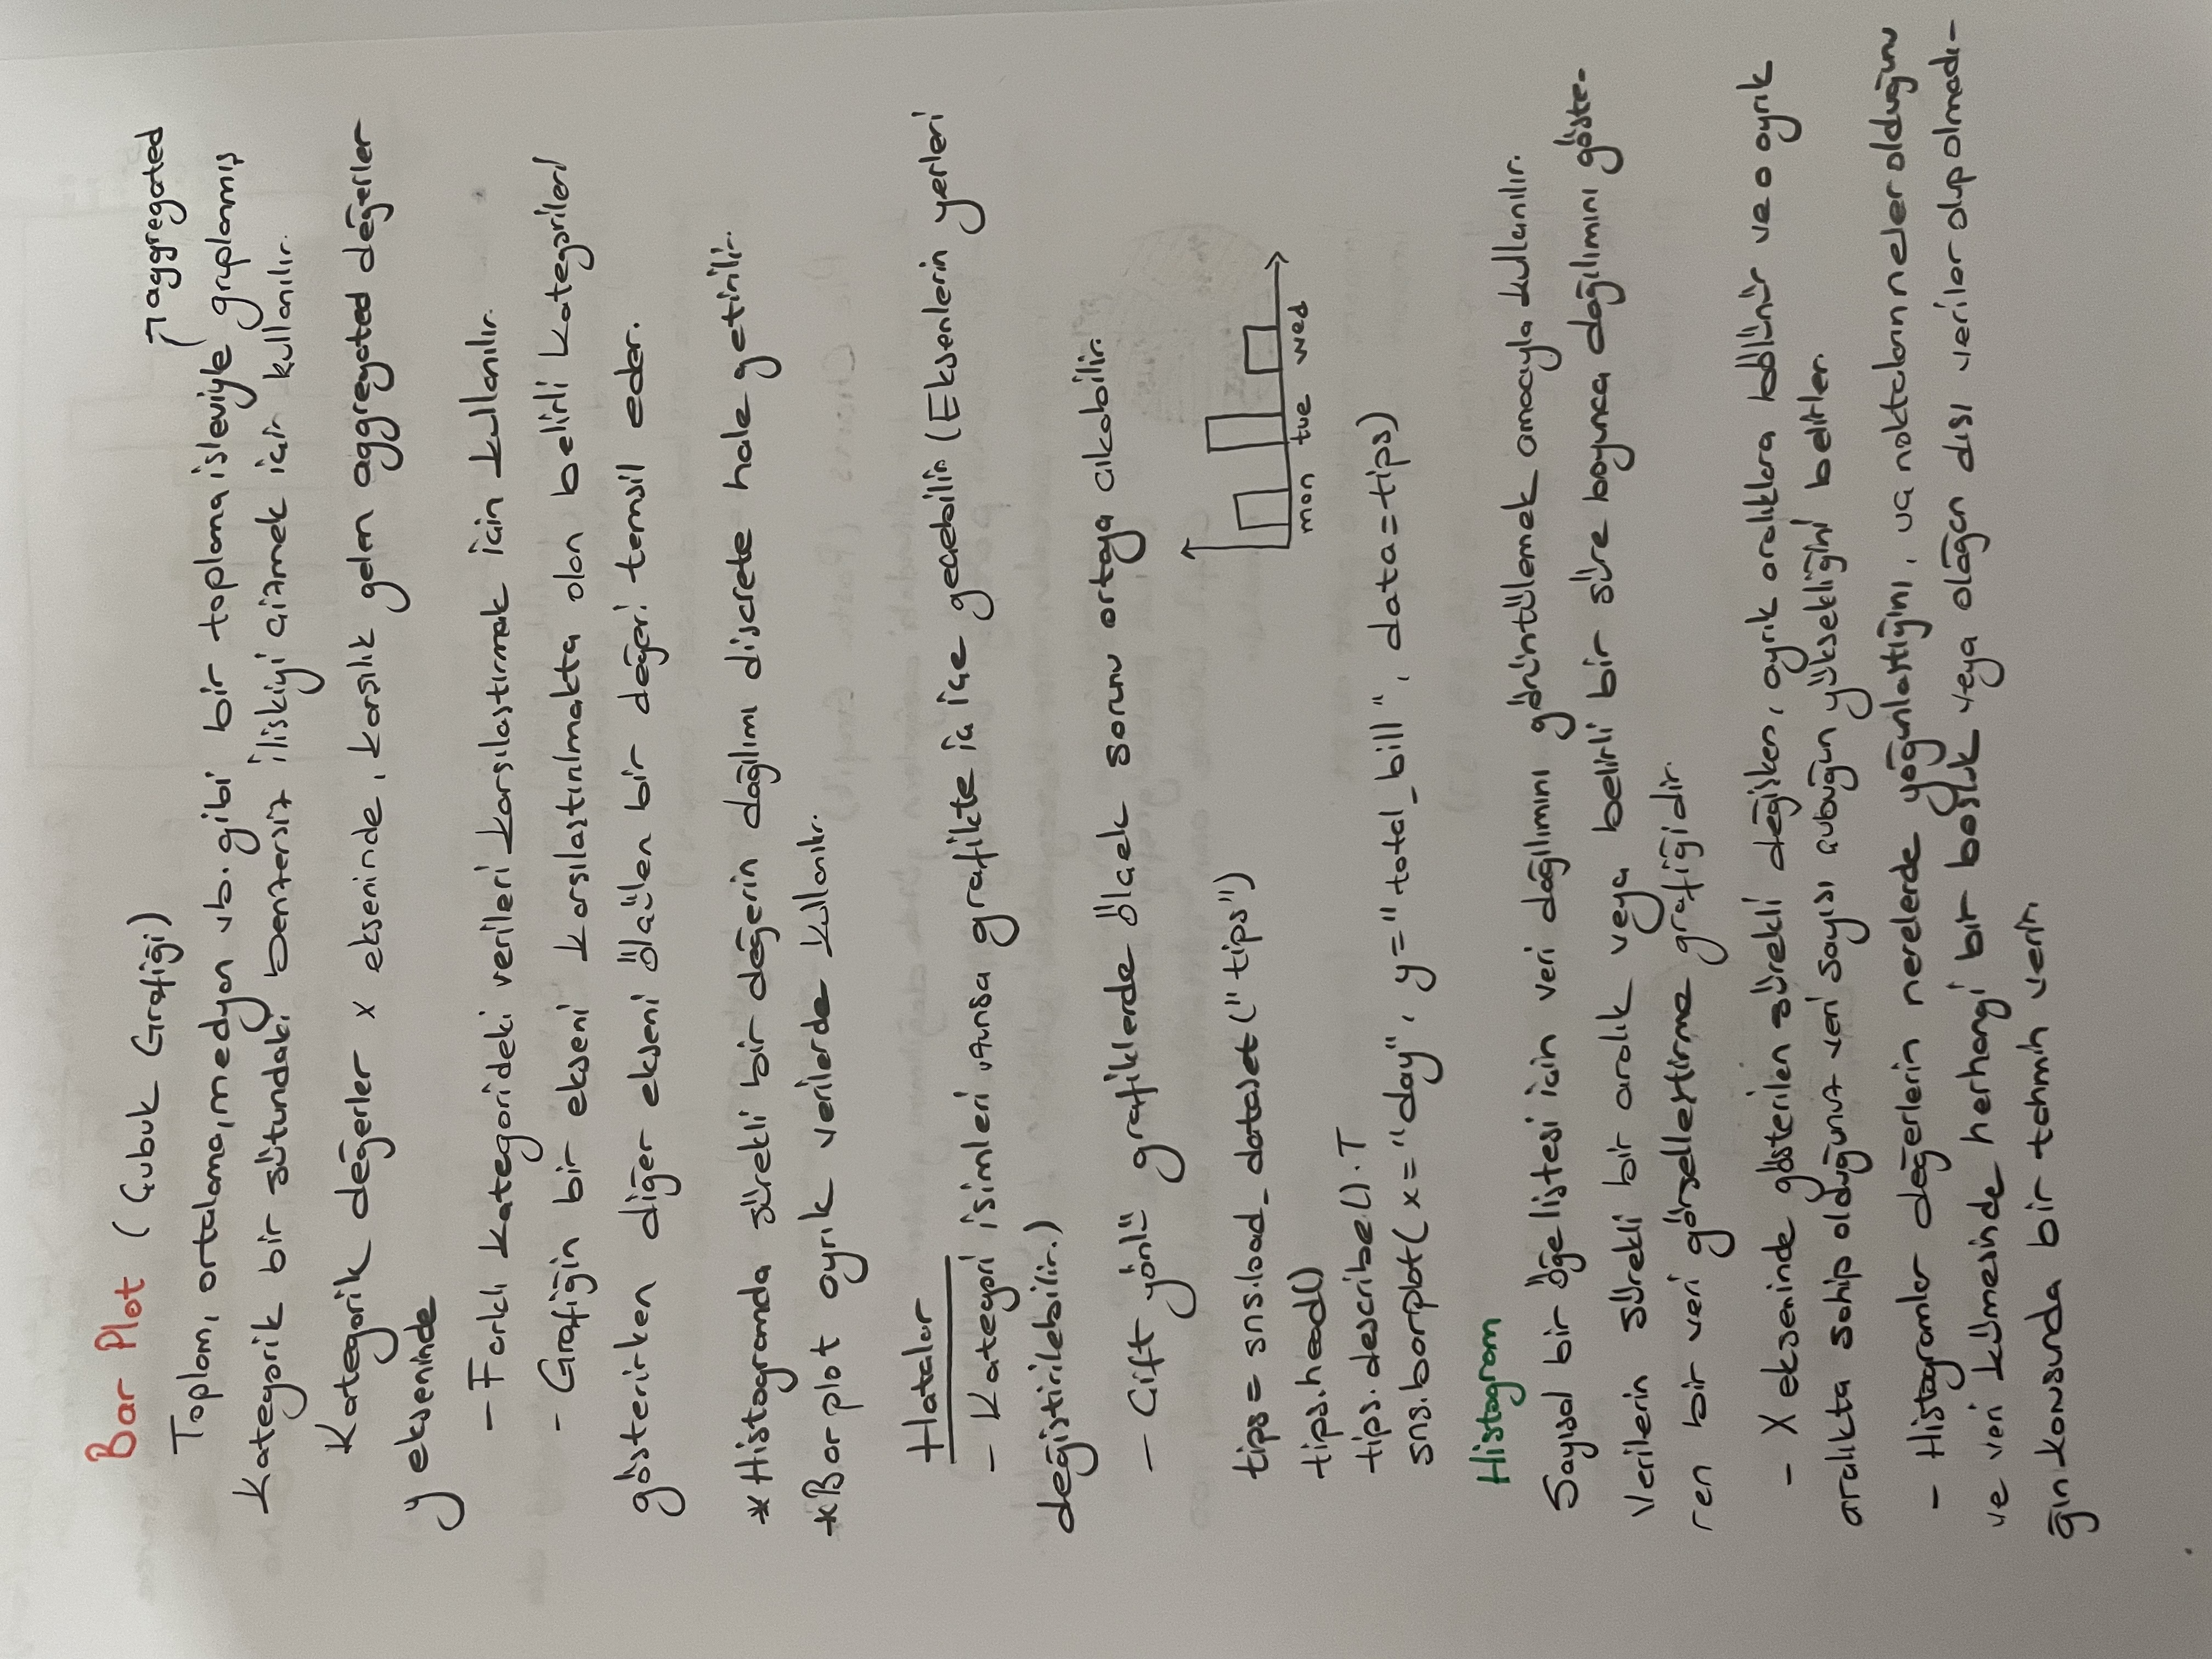 Bar Plot (Çubuk Grafiği)
→ aggregated
Toplam, ortalama, medyan vb. gibi bir toplama işleviyle gruplanmış
kategorik bir sütundaki benzersiz ilişkiyi çizmek için kullanılır.
Kategorik değerler x ekseninde, karşılık gelen aggregated değerler
y ekseninde
- Farklı kategorideki verileri karşılaştırmak için kullanılır.
- Grafiğin bir ekseni karşılaştırılmakta olan belirli kategorileri
gösterirken diğer ekseni ölçülen bir değeri temsil eder.
* Histogramda sürekli bir değerin dağılımı discrete hale getirilir.
* Bar plot ayrık verilerde kullanılır.
Hatalar
- Kategori isimleri uzunsa grafikte iç içe geçebilir (Eksenlerin yerleri
değiştirilebilir.)
- Çift yönlü grafiklerde ölçek sorunu ortaya çıkabilir.
tips = sns.load_dataset("tips")
tips.head()
tips.describe().T
sns.barplot(x="day", y="total_bill", data=tips)
mon tue wed
Histogram
Sayısal bir öğe listesi için veri dağılımını görüntülemek amacıyla kullanılır.
Verilerin sürekli bir aralık veya belirli bir süre boyunca dağılımını göste-
ren bir veri görselleştirme grafiğidir.
- X ekseninde gösterilen sürekli değişken, ayrık aralıklara bölünür ve o ayrık
aralıkta sahip olduğunuz veri sayısı çubuğun yüksekliğini belirler.
- Histogramlar değerlerin nerelerde yoğunlaştığını, uç noktaların neler olduğunu
ve veri kümesinde herhangi bir boşluk veya olağan dışı veriler olup olmadı-
ğın konusunda bir tahmin verir.